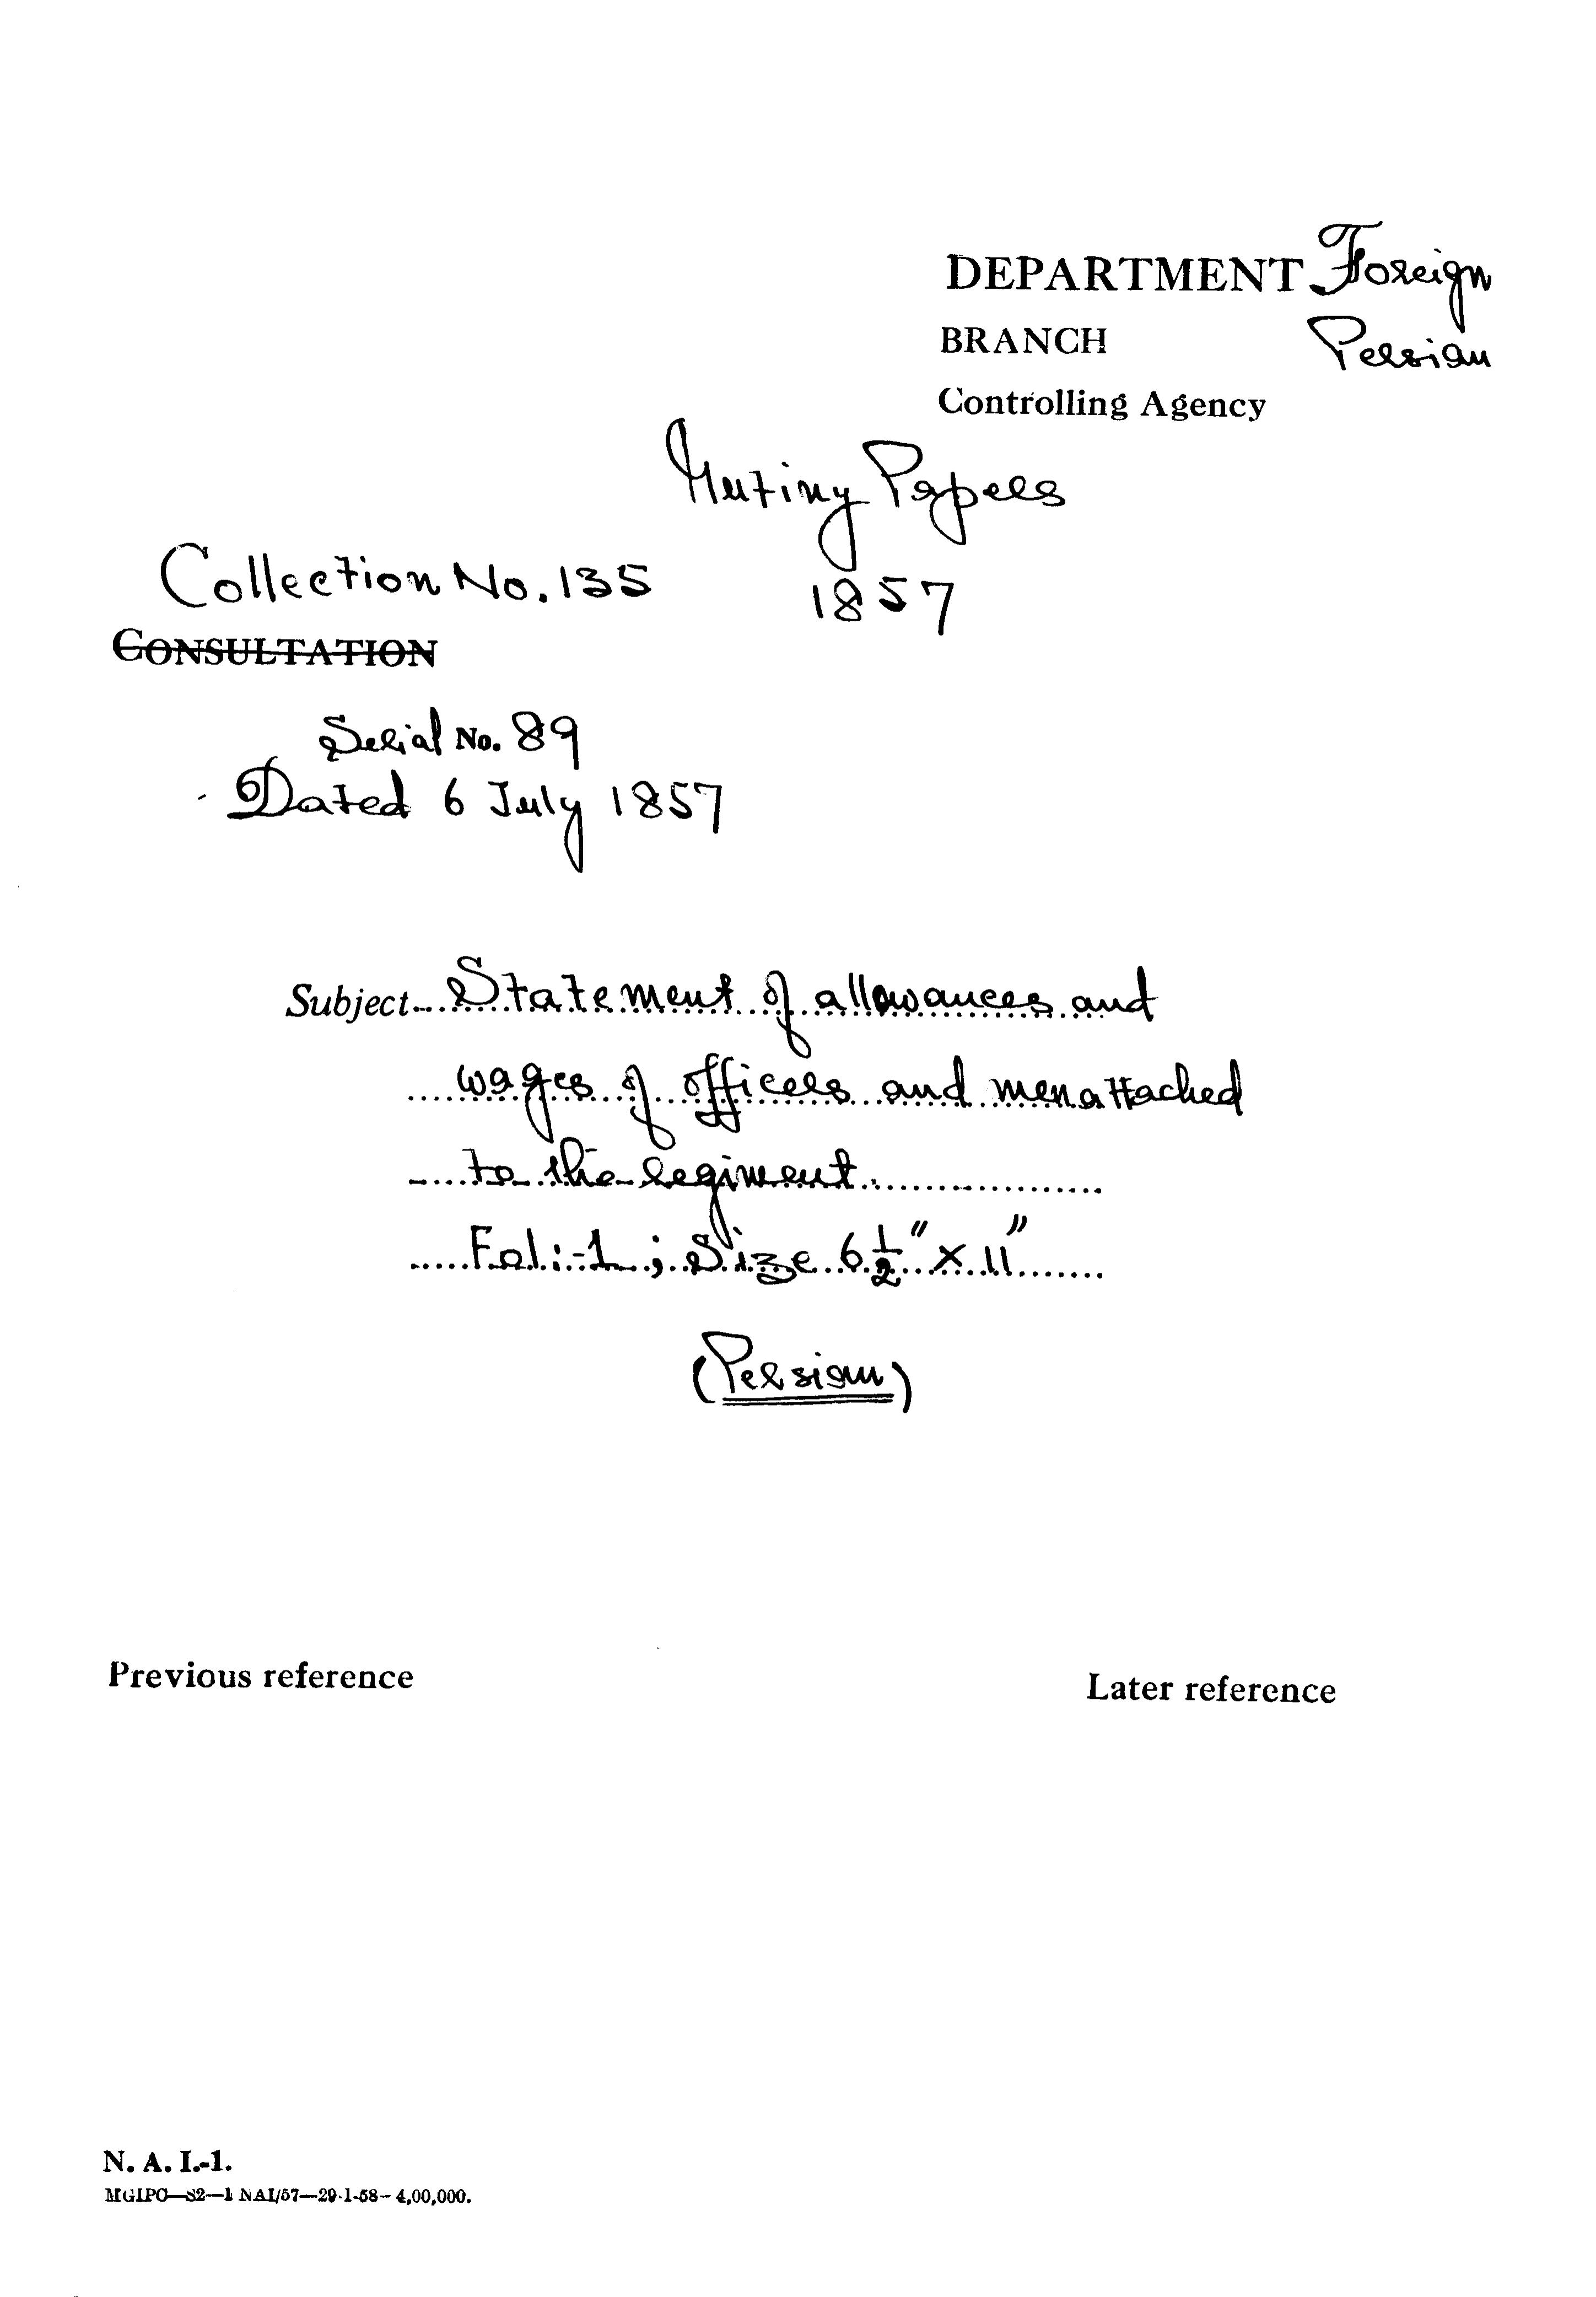 DEPARTMENT Foreign
BRANCH Persian
Controlling Agency
Mutiny Papers
Collection No. 135 1857
CONSULTATION
Serial No. 89
Dated 6 July 1857
Subject Statement of allowances and
wages of officers and men attached
to the regiment
Fol:-1; Size 6 1/2" x 11"
(Persian)
Previous reference Later reference
N. A. I.-1.
MGIPC—S2—1 NAI/57—29-1-58—4,00,000.